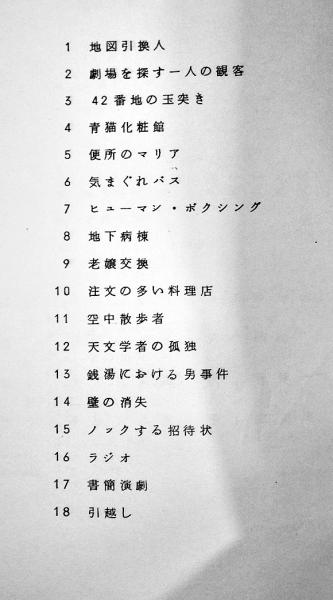 1 地図引換人
2 劇場を探す一人の観客
3 42番地の玉突き
4 青猫化粧館
5 便所のマリア
6 気まぐれバス
7 ヒューマン・ボクシング
8 地下病棟
9 老嬢交換
10 注文の多い料理店
11 空中散歩者
12 天文学者の孤独
13 銭湯における男事件
14 壁の消失
15 ノックする招待状
16 ラジオ
17 書簡演劇
18 引越し